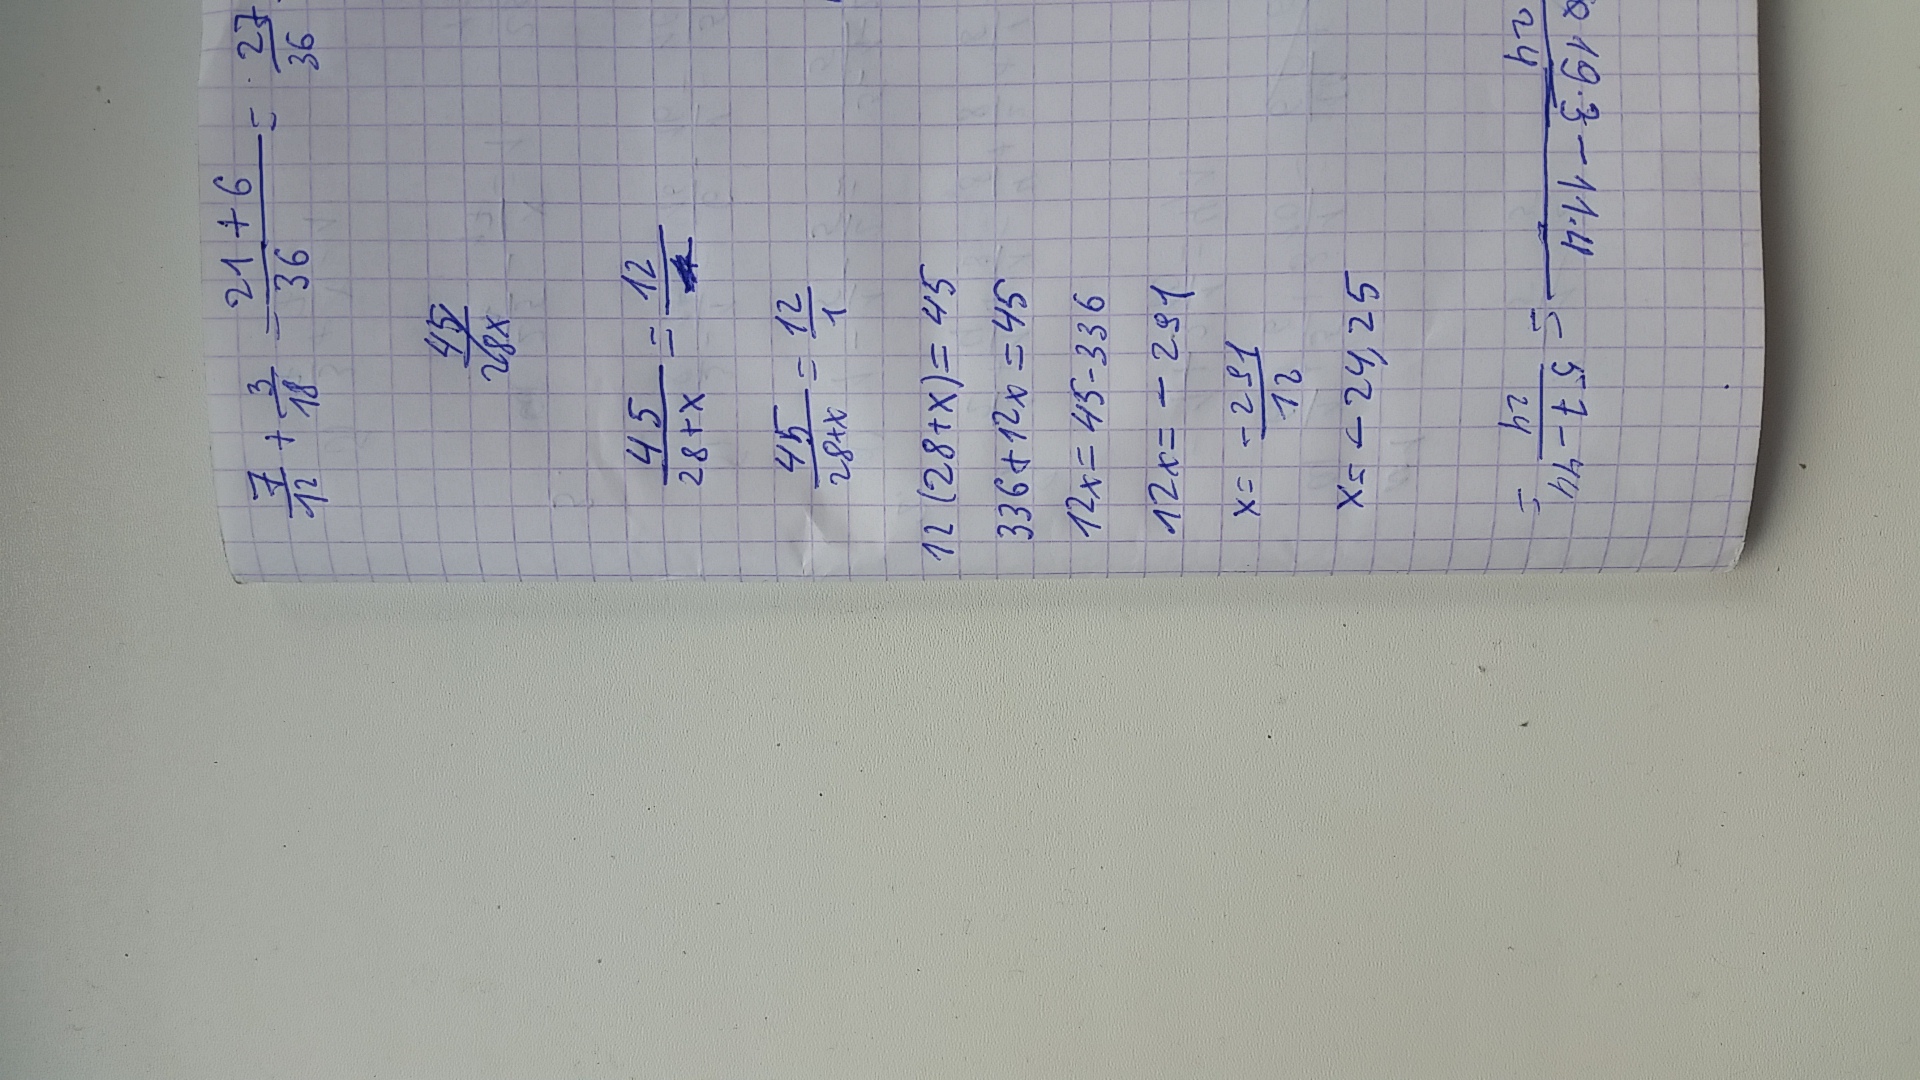 7/12 + 3/18 = 21+6/36 = 27/36
45/28x
45/28+x = 12/
45/28+x = 12/1
12(28+x)=45
336+12x=45
12x=45-336
12x=-291
x= -291/12
x=-24,25
19·3-11·4/24 =
= 57-44/24 =